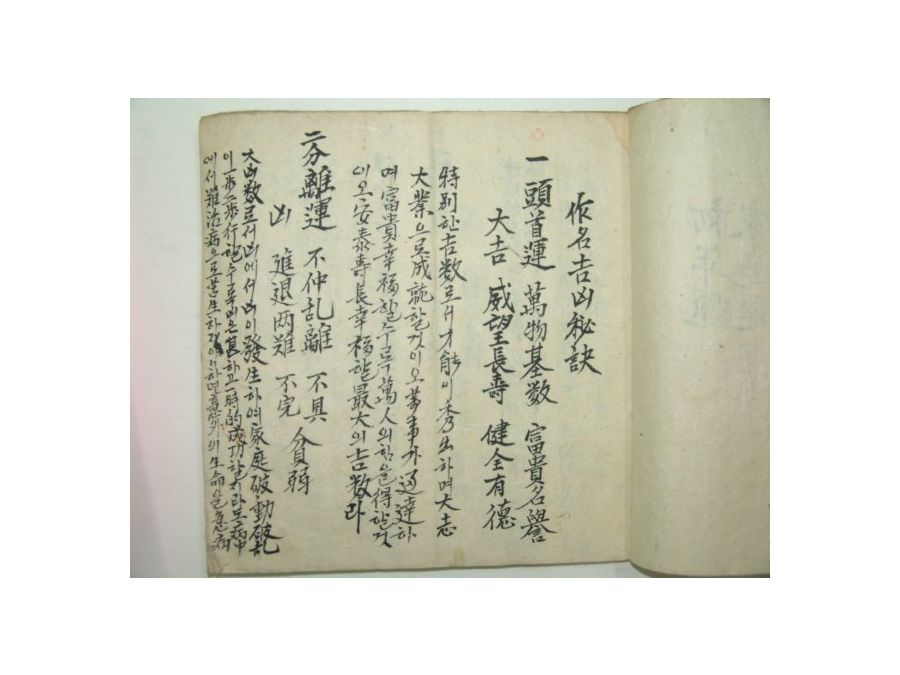 作名吉凶秘訣
一 頭首運 萬物基数 富貴名譽
大吉 威望長壽 健全有德
特別한吉数로서才能이秀出하며大志
大業으로成就할것이오萬事가通達하
며富貴幸福할수루萬人의함을得할것
이오安泰壽長幸福할最大의吉数라
二 分離運 不仲乱離 不具 貧弱
凶 進退両難 不完
大凶数로서凶에서凶이發生하여家庭破動破乱
이一步一步行할수록凶은甚하고一時的成功할지라도病中
에서難治病으로苦生하